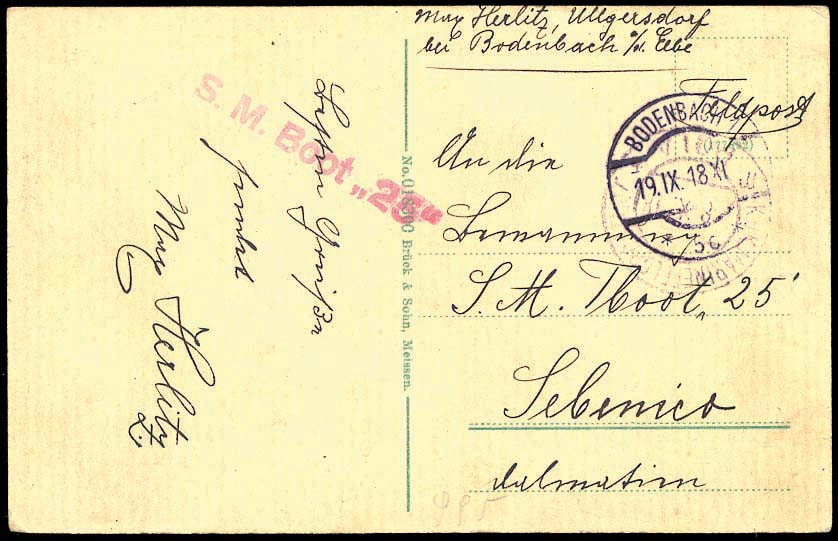 Max Herlitz, Ullgersdorf
bei Bodenbach a/d. Elbe
Feldpost
BODENBACH
19.IX.18 XI
* 5c *
An die
Bemannung
S. M. Boot „25“
Sebenico
Dalmatien
S. M. Boot „25“
Besten Grüße
sendet
Max Herlitz
No. 018300 Brück & Sohn, Meissen.